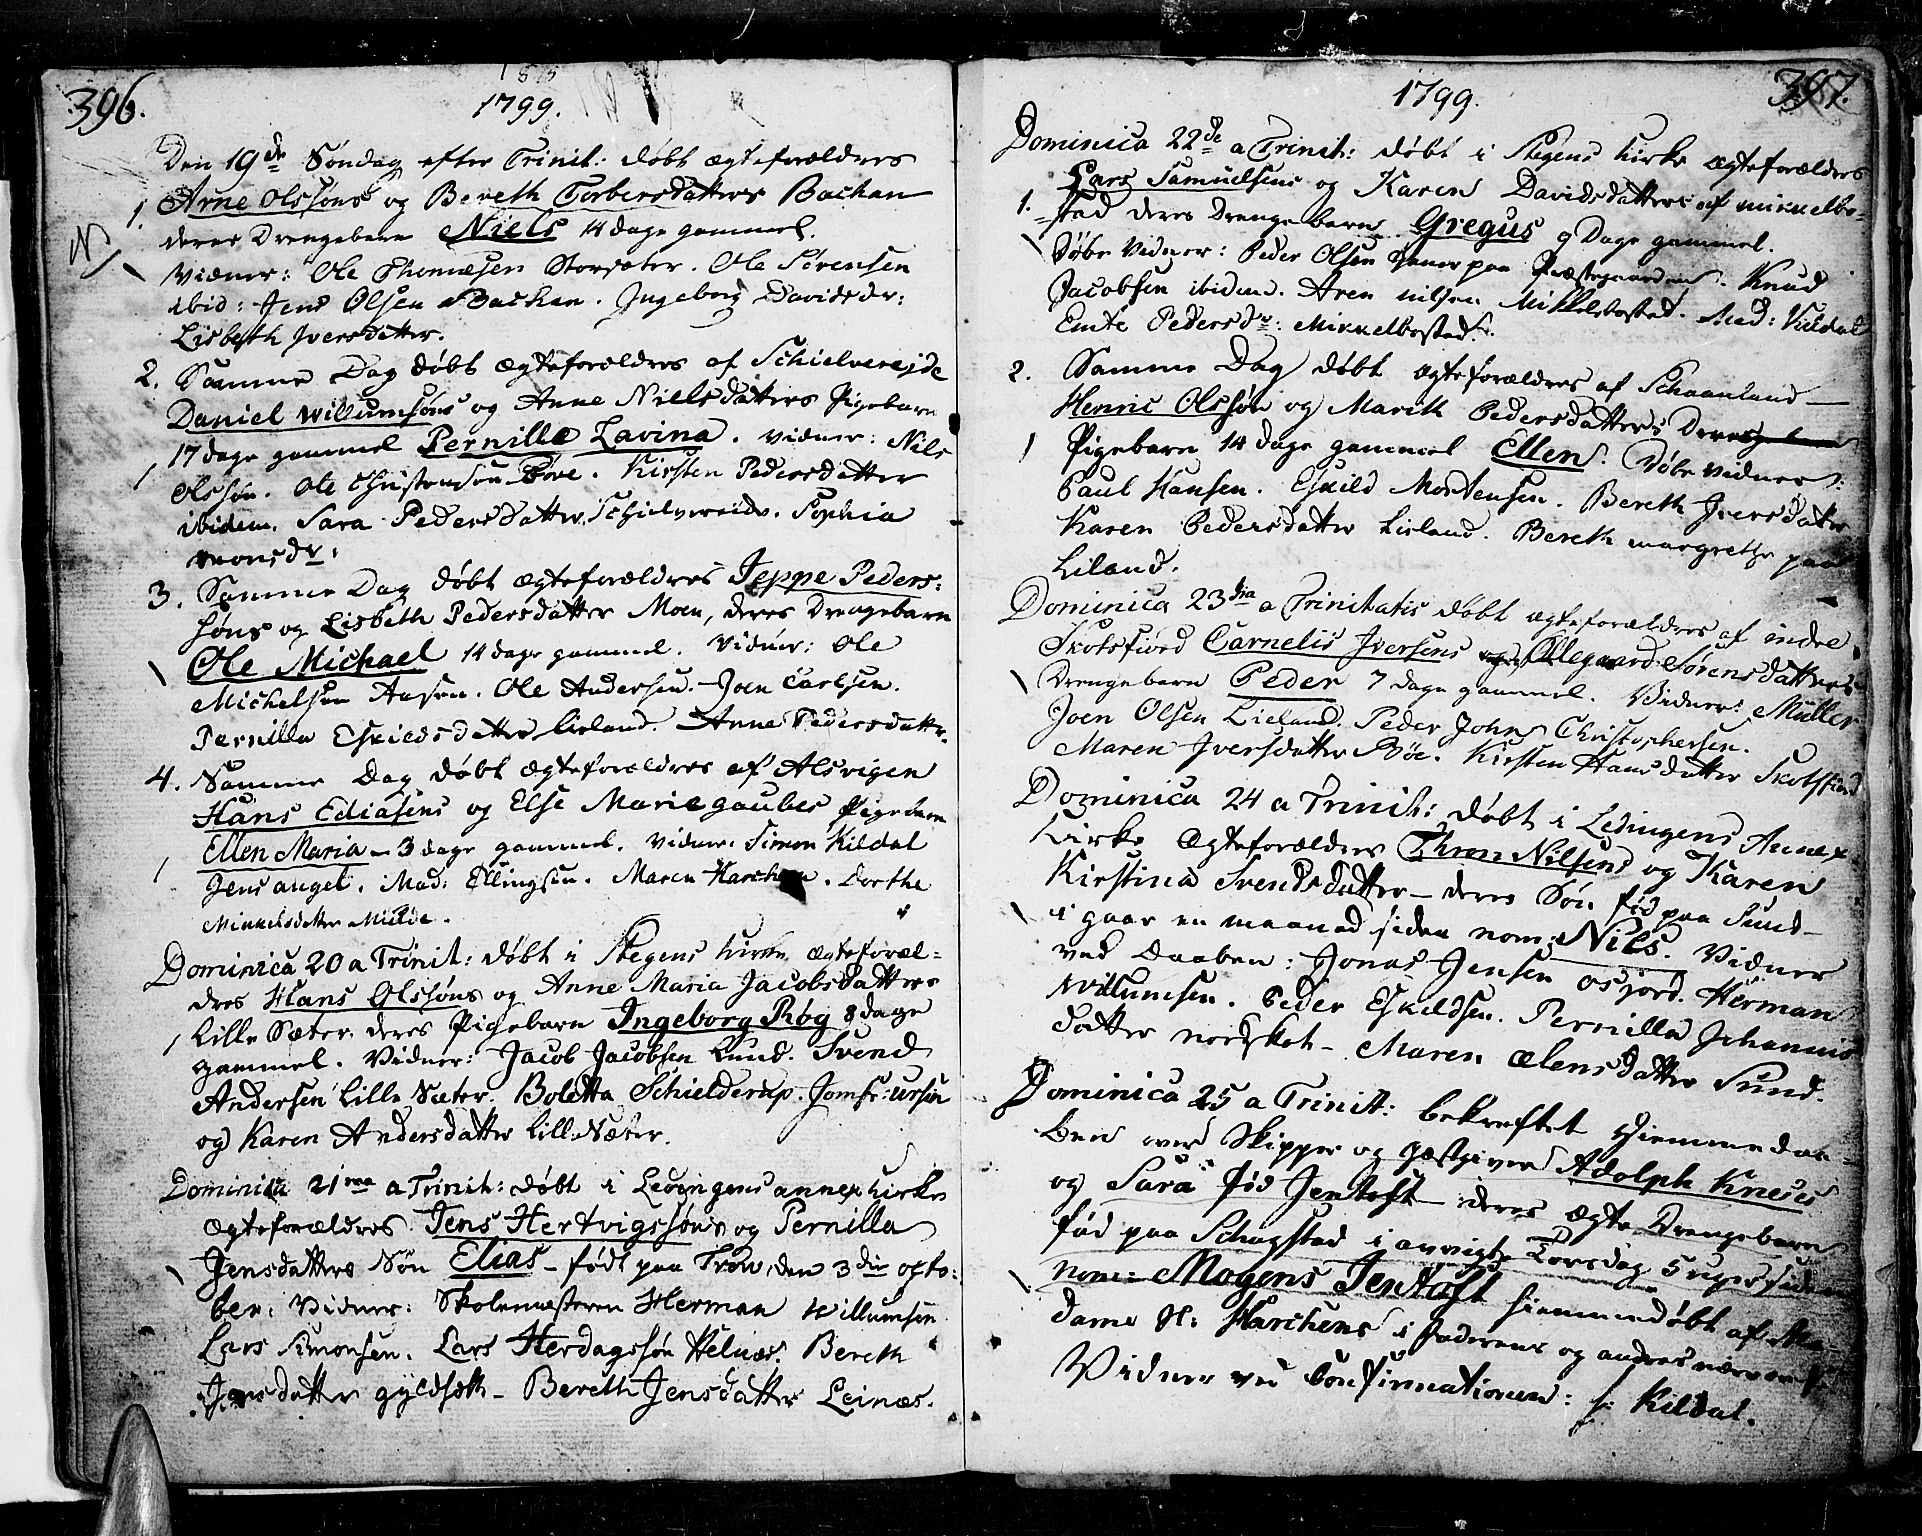 396.
1799.
Den 19de Søndag efter Trinit: døbt ægteforældres
1. Arne Olssøns og Bereth Torbersdatters Bachan
deres Drengebarn Niels 14 dage gammel.
Vidner: Ole Thomæsen Storsæter. Ole Sørensen
ibid: Jens Olsen Bachan. Ingeborg Davidsdr:
Lisbeth Iversdatter.
2. Samme Dag døbt ægteforældres af Schielvereide
Daniel Willumsøns og Anne Nielsdatters Pigebarn
17 dage gammel Pernille Lavina. Vidner: Nils
Olssøn. Ole Christensøn Bøe. Kirsten Pedersdatter
ibidem. Sara Pedersdatter Schielvereide. Sophia
monsdr:
3. Samme Dag døbt ægteforældres Jeppe Peders:
søns og Lisbeth Pedersdatter Moen, deres Drengebarn
Ole Michael 14 dage gammel. Vidner: Ole
Michelsen Aasen. Ole Andersen. Joen Carlsen.
Pernilla Eskildsdatter Lieland. Anne Pedersdattr.
4. Samme Dag døbt ægteforældres af Alsvigen
Hans Ediasens og Else Marie gaubes Pigebarn
Ellen Maria - 3 dage gammel. Vidner: Simon Kildal
Jens angel. Mad: Ellingsen. Maren Harchen. Dorthe
Mikkelsdatter Milde.
Dominica 20 a Trinit: døbt i Stegens kirke ægteforæl=
dres Hans Olssøns og Anne Maria Jacobsdatters
Lille Sæter deres Pigebarn Ingeborg Røg 8 dage
gammel. Vidner: Jacob Jacobsen Lund. Svend
Andersen Lille Sæter. Boletta Schielderup. Jomfr: ursin
og Karen Andersdatter Lille Sæter.
Dominica 21ma a Trinit: døbt i Ledingens annex kirke
ægteforældres Jens Hertvigssøns og Pernilla
Jensdatters Søn Elias - født paa Trøw, den 3die octo:
ber. Vidner: Skolemesteren Herman Willumsen
Lars Simonsen. Lars Herdagssøn Helnæs. Bereth
Jensdatter gyldsæth - Bereth Jensdatter Leinæs.
397.
1799.
Dominica 22de a Trinit: døbt i Stegens kirke ægteforældres
1. Lars Samuelsens og Karen Davidsdatters af mikkelbo=
stad deres Drengebarn Gregus 9 Dage gammel.
Døbe Vidner: Peder Olsen paa Præstegaarden. Knud
Jacobsen ibidem. Aren nilsen Mikkelsbostad. Mad: Kildal
Emte Pedersdr: Mikkelbostad.
2. Samme Dag døbt ægteforældres af Schaanland
Henric Olssøn og Marith Pedersdatters Deres
Pigebarn 14 dage gammel Ellen. Døbe vidner:
Paul Hansen. Eskild Mortensen. Bereth Iversdatter
Karen Pedersdatter Lieland. Bereth margrethe paa
Liland.
Dominica 23tia a Trinitatis døbt ægteforældres af indre
Skotsfiord Carnelis Iversens og Ollegaard Sørensdatters
Drengebarn Peder 7 dage gammel. Vidner: Müller
Joen Olsen Lieland. Peder John Christophersen.
Maren Iversdatter Bøe. Kirsten Hansdatter Skotsfiord
Dominica 24 a Trinit: døbt i Ledingens Annex
kirke ægteforældres Thron Nilsens og Karen
Kirstina Svendsdatter - deres Søn fød paa Sund
i gaar en maaned siden nom: Nils. Vidner
ved Daaben: Jonas Jensen osjord. Herman
Willumsen. Peder Eskildsen. Pernilla Johannis
datter norsket - Maren ælensdatter Sund.
Dominica 25 a Trinit: bekreftet Hiemmedaa=
ben over Skipper og gæstgiver Adolph Knees
og Sara fød Jentoft - deres ægte Drengebarn
fød paa Schogstad i avrigte Torsdag 5 uger siden
nom: Mogens Jentoft hiemmedøbt af Ma=
dame Sl: Harchens i faderens og andres nærværelse
Vidner ved Confirmationen: S: Kildal.